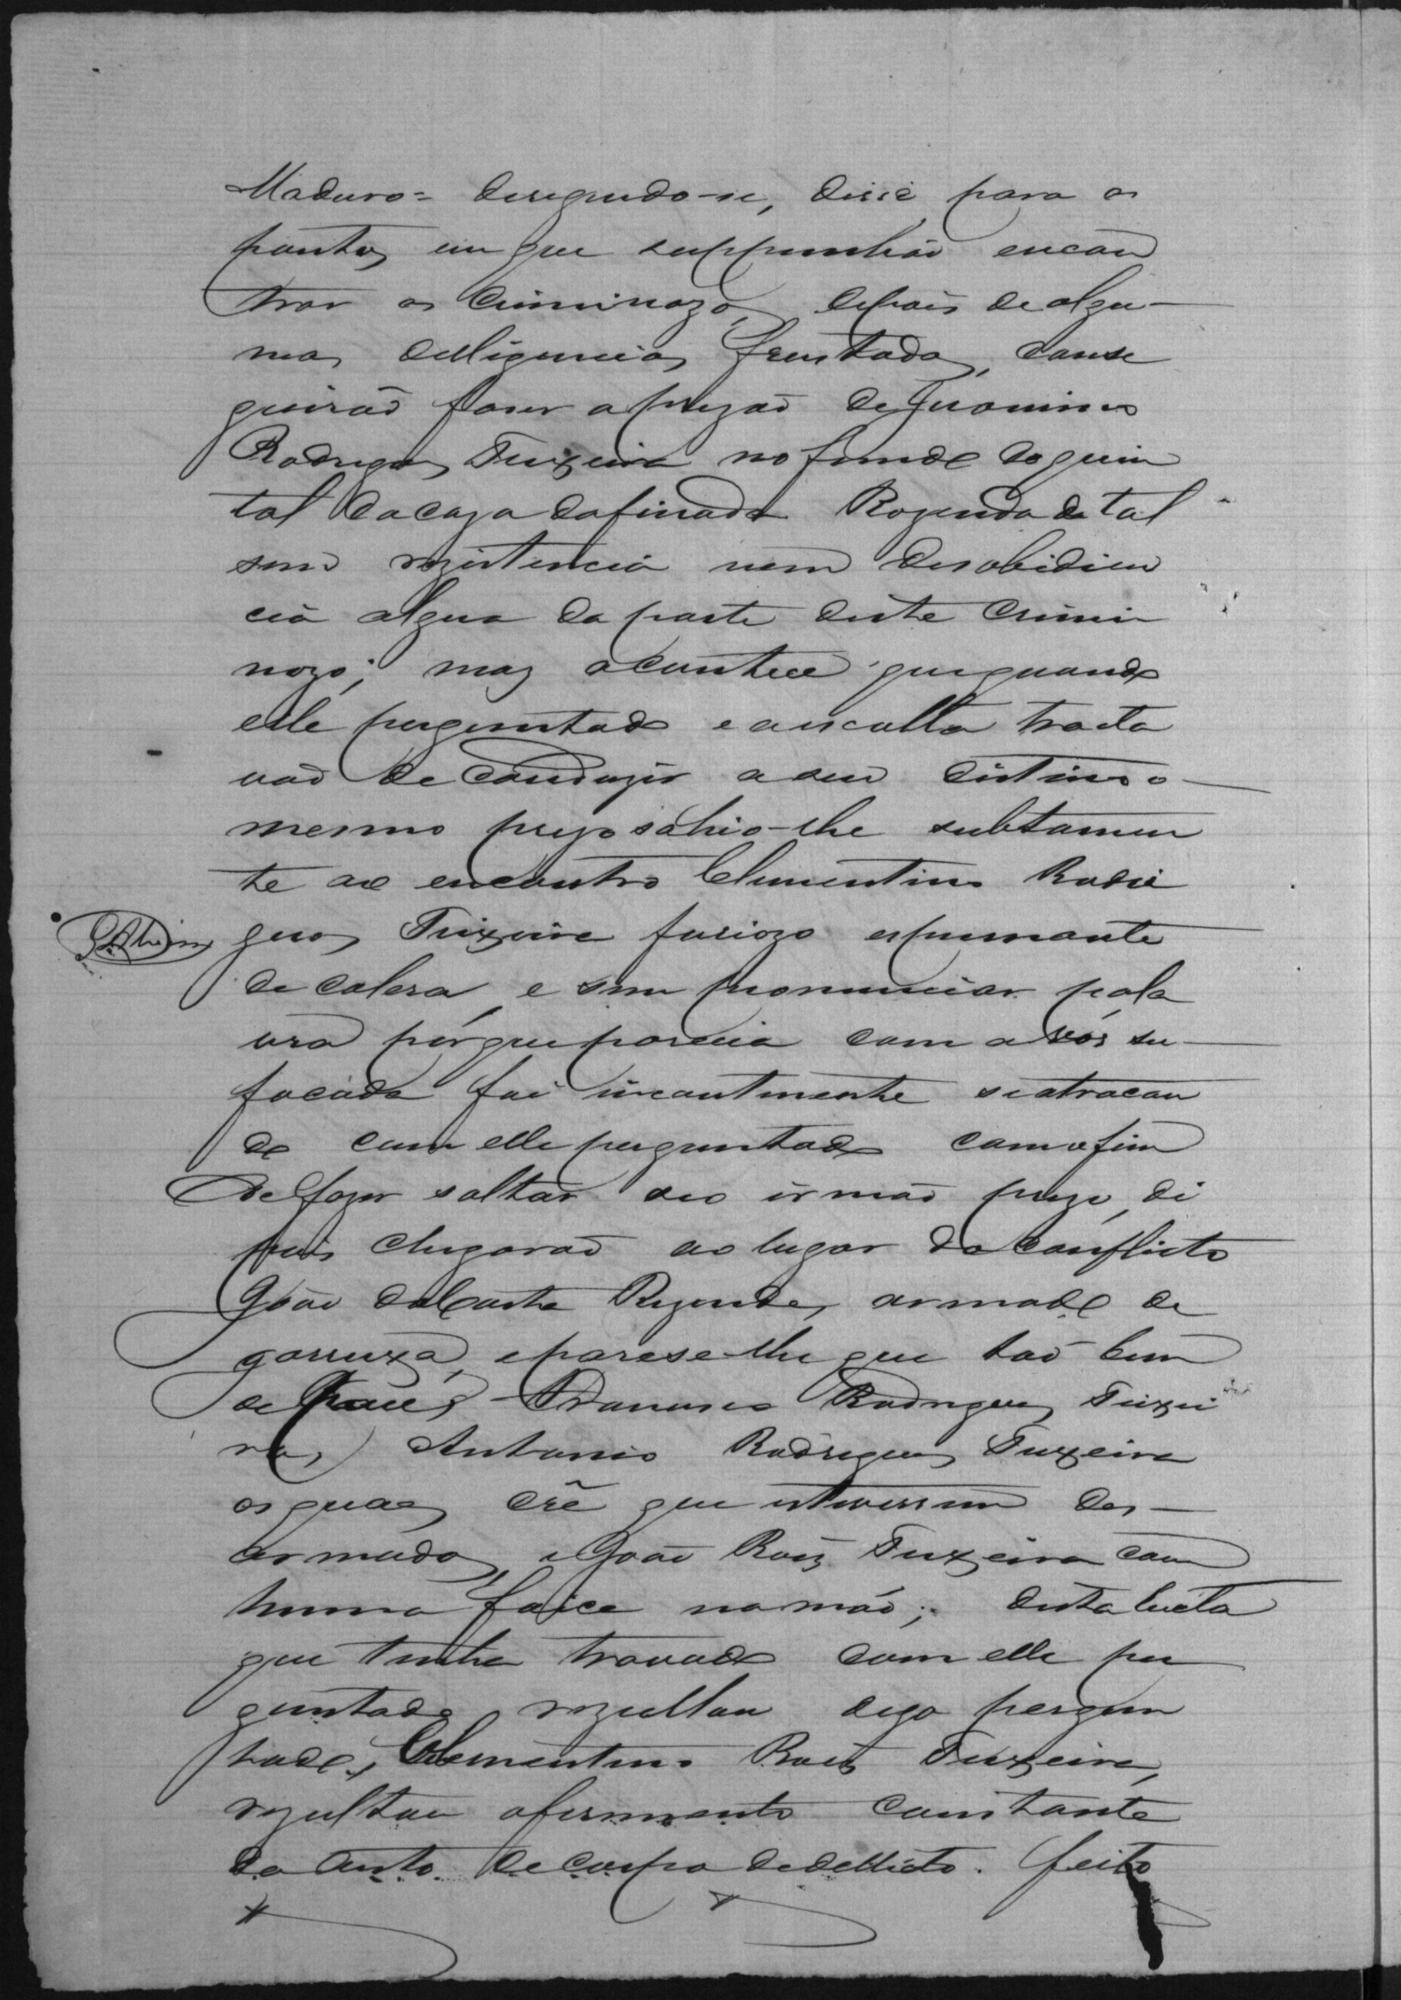 Maduro= deregindo-se, disse para os
pontos em que suppunhão encon
trar os Criminozos, depois de algu-
mas delligencias frustadas, conse
guirão faser a prezão de Jeronimo
Rodrigues Teixeira no fundo do quin
tal da caza da finada Rozenda de tal
sem rezistencia nem desobidien
cia algua da parte deste Crimi
nozo; mas acontece que quando
elle perguntado e a escolta tracta
vão de conduzir a seu distino o
mesmo prezo sahio-lhe subtamen
te ao encontro Clementino Rodri
gues Teixeira furiozo espumante
de colera, e sem pronunciar pala
vra pórque parecia com a vós su-
focada foi incontinente se atracan
do com elle perguntado com o fim
de fazer soltar seo irmão prezo, di
pois chegarão ao lugar do conflicto
João da Costa Rezende, armado de
garruxa, e parese-lhe que tão bem
de Francisco Rodrigues Teixei
ra, Antonio Rodrigues Teixeira
os quaes crê que estivessem des-
armados, e João Roiz Teixeira com
huma foice na mão; desta lucta
que tinha travado com elle per
guntado rezultou digo pergun
tado, Clementino Roiz Teixeira,
rezultou o ferimento constante
do Auto de corpo de dellicto. feito